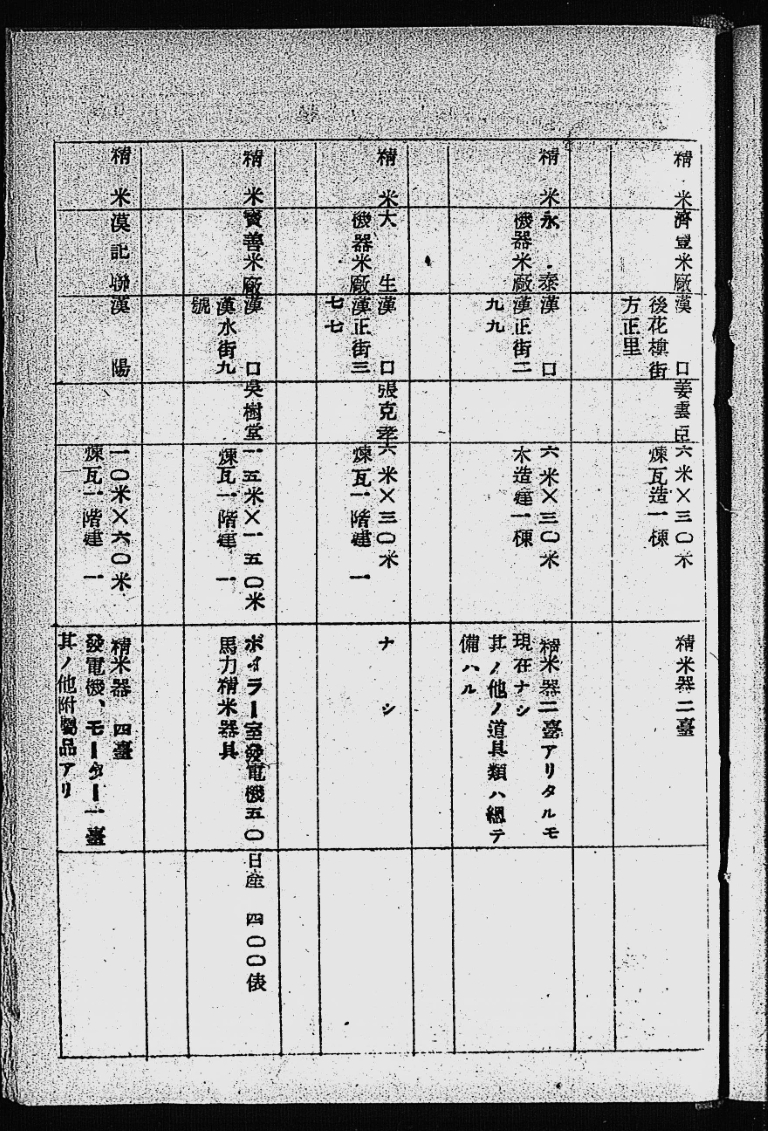 精米
濟豐米廠
漢口
後花樓街
方正里
姜雲臣
六米×三〇米
煉瓦造一棟
精米器二臺
精米
永泰
機器米廠
漢口
漢正街二
九九
六米×三〇米
木造建一棟
精米器二臺アリタルモ
現在ナシ
其ノ他ノ道具類ハ總テ
備ハル
精米
大生
機器米廠
漢口
漢正街三
七七
張克孝
六米×三〇米
煉瓦一階建一
ナシ
精米
寶善米廠
漢口
漢水街九
號
吳樹堂
一五米×一五〇米
煉瓦一階建一
ボイラー室發電機五〇
馬力精米器具
日産四〇〇俵
精米
漢記聯
漢陽
一〇米×六〇米
煉瓦一階建一
精米器四臺
發電機、モーター一臺
其ノ他附屬品アリ